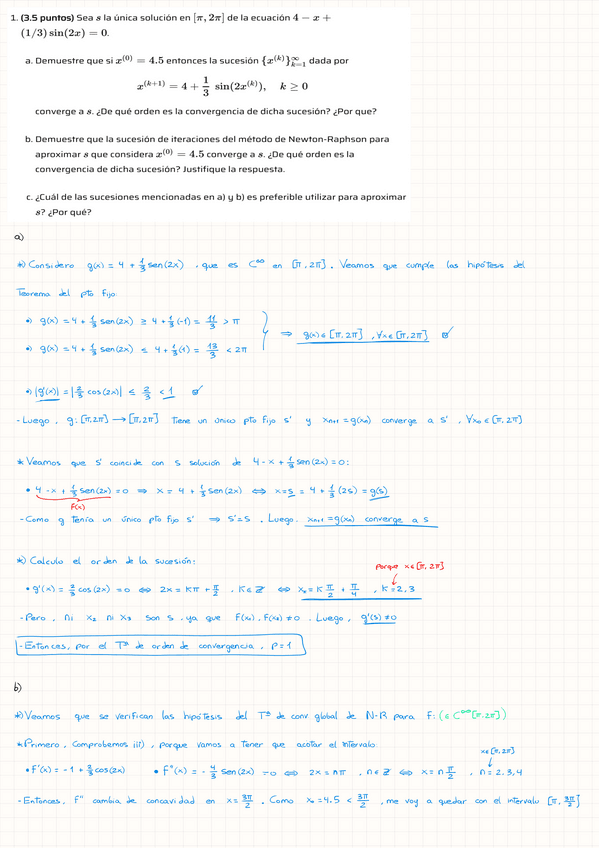 1. (3.5 puntos) Sea s la única solución en [π, 2π] de la ecuación 4 − x +
(1/3) sin(2x) = 0.
a. Demuestre que si x^(0) = 4.5 entonces la sucesión {x^(k)}_{k=1}^∞ dada por
x^(k+1) = 4 + 1/3 sin(2x^(k)), k ≥ 0
converge a s. ¿De qué orden es la convergencia de dicha sucesión? ¿Por que?
b. Demuestre que la sucesión de iteraciones del método de Newton-Raphson para
aproximar s que considera x^(0) = 4.5 converge a s. ¿De qué orden es la
convergencia de dicha sucesión? Justifique la respuesta.
c. ¿Cuál de las sucesiones mencionadas en a) y b) es preferible utilizar para aproximar
s? ¿Por qué?
a)
*) Considero g(x) = 4 + 1/3 sen(2x), que es C^∞ en [π, 2π]. Veamos que cumple las hipótesis del
Teorema del pto fijo:
•) g(x) = 4 + 1/3 sen(2x) ≥ 4 + 1/3(-1) = 11/3 > π
⇒ g(x) ∈ [π, 2π], ∀x ∈ [π, 2π]
•) g(x) = 4 + 1/3 sen(2x) ≤ 4 + 1/3(1) = 13/3 < 2π
•) |g'(x)| = |2/3 cos(2x)| ≤ 2/3 < 1
- Luego, g: [π, 2π] → [π, 2π] Tiene un único pto fijo s' y x_{n+1} = g(x_n) converge a s', ∀x_0 ∈ [π, 2π]
* Veamos que s' coincide con s solución de 4 - x + 1/3 sen(2x) = 0:
• 4 - x + 1/3 sen(2x) = 0 ⇒ x = 4 + 1/3 sen(2x) ⟺ x = s = 4 + 1/3 (2s) = g(s)
F(x)
- Como g tenía un único pto fijo s' ⇒ s' = s. Luego, x_{n+1} = g(x_n) converge a s
*) Calculo el orden de la sucesión:
porque x ∈ [π, 2π]
• g'(x) = 2/3 cos(2x) = 0 ⟺ 2x = kπ + π/2, k ∈ Z ⟺ x_k = k π/2 + π/4, k = 2, 3
- Pero, ni x_2 ni x_3 son s, ya que F(x_2), F(x_3) ≠ 0. Luego, g'(s) ≠ 0
- Entonces, por el T^ma de orden de convergencia, p = 1
b)
*) Veamos que se verifican las hipótesis del T^ma de conv global de N-R para F: (∈ C^∞[π, 2π])
* Primero, comprobemos iii), porque vamos a tener que acotar el intervalo:
x ∈ [π, 2π]
• F'(x) = -1 + 2/3 cos(2x) • F''(x) = -4/3 sen(2x) = 0 ⟺ 2x = nπ, n ∈ Z ⟺ x = n π/2, n = 2, 3, 4
- Entonces, F'' cambia de concavidad en x = 3π/2. Como x_0 = 4.5 < 3π/2, me voy a quedar con el intervalo [π, 3π/2]